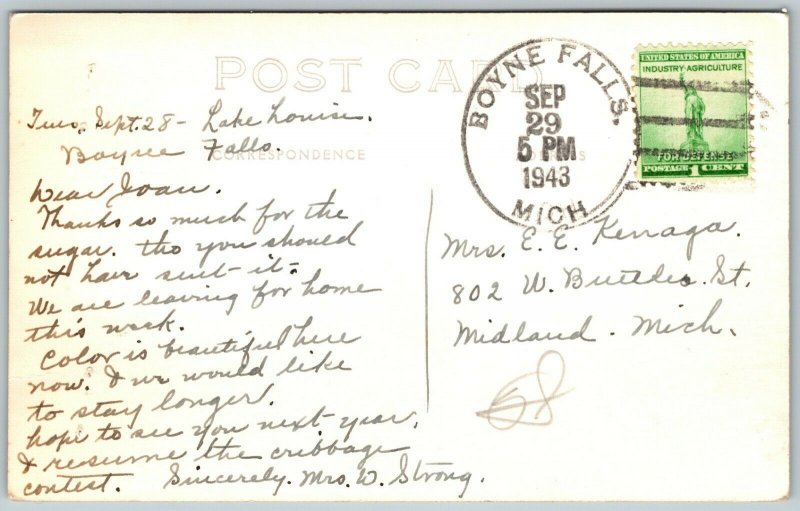 POST CARD
CORRESPONDENCE
Tues, Sept. 28 - Lake Louise.
Boyne Falls.
Dear Joan.
Thanks so much for the
sugar. tho you should
not have sent it -
We are leaving for home
this week.
Color is beautiful here
now. & we would like
to stay longer.
hope to see you next year.
& resume the cribbage
contest. Sincerely. Mrs. W. Strong.
BOYNE FALLS.
SEP
29
5 PM
1943
MICH
UNITED STATES OF AMERICA
INDUSTRY·AGRICULTURE
FOR DEFENSE
POSTAGE 1 CENT
Mrs. E. E. Kenaga.
802 W. St.
Midland. Mich.